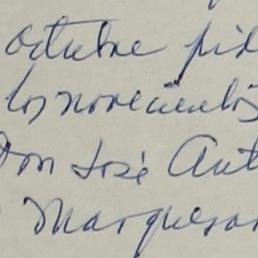 octubre pid
los novecientos
Don José Ant
Marquesar